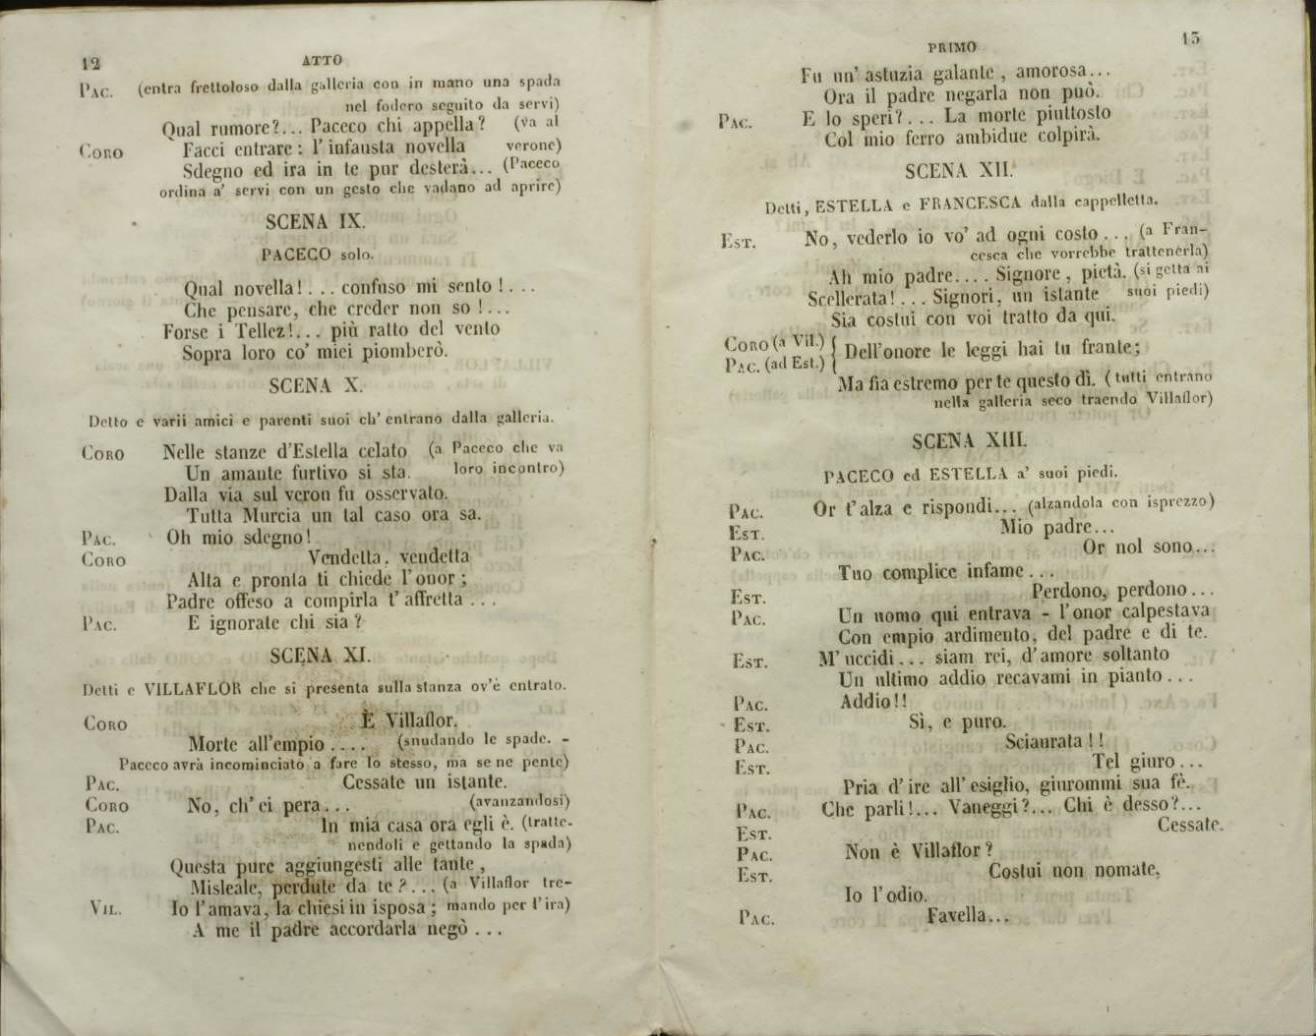 12
ATTO
PAC. (entra frettoloso dalla galleria con in mano una spada
nel fodero seguito da servi)
Qual rumore?... Paceco chi appella? (va al
CORO Facci entrare: l'infausta novella verone)
Sdegno ed ira in te pur desterà... (Paceco
ordina a' servi con un gesto che vadano ad aprire)
SCENA IX.
PACECO solo.
Qual novella!... confuso mi sento!...
Che pensare, che creder non so!...
Forse i Tellez!... più ratto del vento
Sopra loro co' miei piomberò.
SCENA X.
Detto e varii amici e parenti suoi ch'entrano dalla galleria.
CORO Nelle stanze d'Estella celato (a Paceco che va
Un amante furtivo si sta. loro incontro)
Dalla via sul veron fu osservato.
Tutta Murcia un tal caso ora sa.
PAC. Oh mio sdegno!
CORO Vendetta, vendetta
Alta e pronta ti chiede l'onor;
Padre offeso a compirla t'affretta...
PAC. E ignorate chi sia?
SCENA XI.
Detti e VILLAFLOR che si presenta sulla stanza ov'è entrato.
CORO È Villaflor.
Morte all'empio.... (snudando le spade. -
Paceco avrà incominciato a fare lo stesso, ma se ne pente)
PAC. Cessate un istante.
CORO No, ch'ei pera... (avanzandosi)
PAC. In mia casa ora egli è. (tratte-
nendoli e gettando la spada)
Questa pure aggiungesti alle tante,
Misleale, perdute da te?... (a Villaflor tre-
VIL. Io l'amava, la chiesi in isposa; mando per l'ira)
A me il padre accordarla negò...
PRIMO
13
Fu un'astuzia galante, amorosa...
Ora il padre negarla non può.
PAC. E lo speri?... La morte piuttosto
Col mio ferro ambidue colpirà.
SCENA XII.
Detti, ESTELLA e FRANCESCA dalla cappelletta.
EST. No, vederlo io vo' ad ogni costo... (a Fran-
cesca che vorrebbe trattenerla)
Ah mio padre.... Signore, pietà. (si getta ai
Scellerata!... Signori, un istante suoi piedi)
Sia costui con voi tratto da qui.
CORO (a Vil.) { Dell'onore le leggi hai tu frante;
PAC. (ad Est.)
Ma fia estremo per te questo dì. (tutti entrano
nella galleria seco traendo Villaflor)
SCENA XIII.
PACECO ed ESTELLA a' suoi piedi.
PAC. Or t'alza e rispondi... (alzandola con isprezzo)
EST. Mio padre...
PAC. Or nol sono...
Tuo complice infame...
EST. Perdono, perdono...
PAC. Un uomo qui entrava - l'onor calpestava
Con empio ardimento, del padre e di te.
EST. M'uccidi... siam rei, d'amore soltanto
Un ultimo addio recavami in pianto...
PAC. Addio!!
EST. Sì, e puro.
PAC. Sciaurata!!
EST. Tel giuro...
Pria d'ire all'esiglio, giurommi sua fè.
PAC. Che parli!... Vaneggi?... Chi è desso?...
EST. Cessate.
PAC. Non è Villaflor?
EST. Costui non nomate,
Io l'odio.
PAC. Favella...